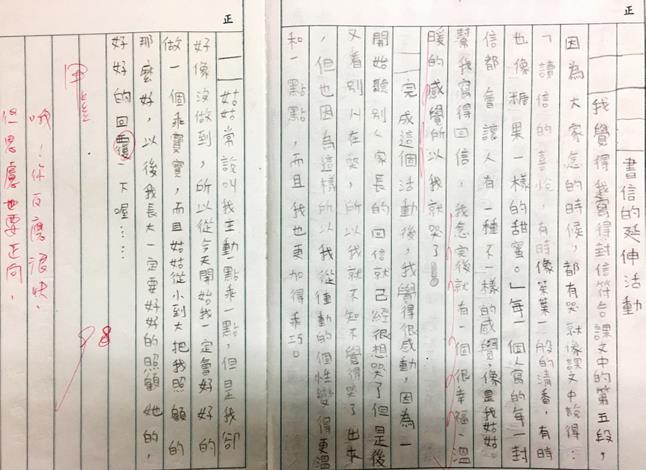 正
書信的延伸活動
我覺得我寫得封信符合課文中的第五段,
因為大家念的時候,都有哭就像課文中說得:
「讀信的喜悅,有時像茶葉一般的清香,有時
也像糖果一樣的甜蜜。」每一個人寫的每一封
信都會讓人有一種不一樣的感覺,像是我姑姑
幫我寫得回信,我念完後就有一個很幸福、溫
暖的感覺所以我就哭了!
完成這個活動後,我覺得很感動,因為一
開始聽別人家長的回信就已經很想哭了但是後
又看別人在哭,所以我就不知不覺得哭了出來
,但也因為這樣所以我從衝動的個性變得更溫
和一點點,而且我也更加得乖巧。
正
姑姑常說叫我主動一點乖一點,但是我卻
好像沒做到,所以從今天開始我一定會好好的
做一個乖寶寶,而且姑姑從小到大把我照顧的
那麼好,以後我長大一定要好好的照顧她的,
好好的回覆一下喔……
哦!你反應很快,
但思慮也要正向,
98